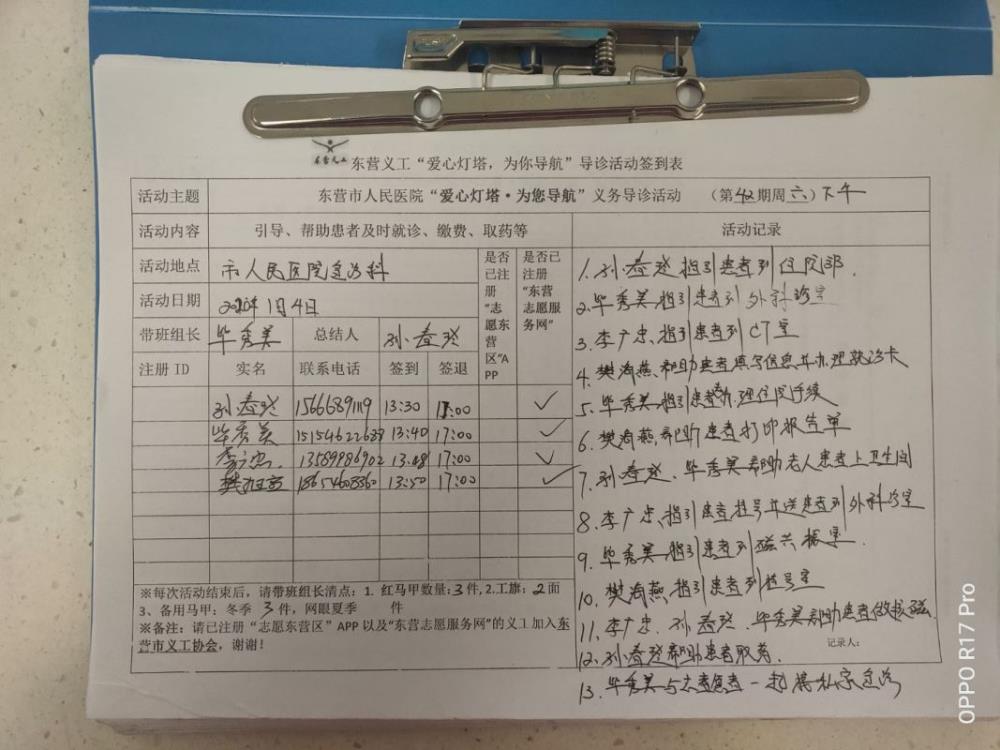 东营义工
东营义工“爱心灯塔，为你导航”导诊活动签到表
活动主题 东营市人民医院“爱心灯塔·为您导航”义务导诊活动 （第42期周六）下午
活动内容 引导、帮助患者及时就诊、缴费、取药等
活动地点 市人民医院急诊科
活动日期 2020年1月4日
带班组长 毕秀美 总结人 孙春玲
是否已注册“志愿东营区”APP
是否已注册“东营志愿服务网”
注册 ID 实名 联系电话 签到 签退
孙春玲 1566689119 13:30 17:00 ✓
毕秀美 15154622638 13:40 17:00 ✓
李广忠 13589986902 13:48 17:00 ✓
18654608360 13:50 17:00 ✓
※每次活动结束后，请带班组长清点：1. 红马甲数量：3件，2.工旗：2面
3、备用马甲：冬季 3件，网眼夏季 件
※备注：请已注册“志愿东营区”APP 以及“东营志愿服务网”的义工加入东
营市义工协会，谢谢！
活动记录
1.孙春玲指引患者到住院部.
2.毕秀美指引患者到外科诊室
3.李广忠、指引患者到CT室
4.樊海燕、帮助患者填写信息并办理就诊卡
5.毕秀美指引患者办理住院手续
6.樊海燕帮助患者打印报告单
7.孙春玲、毕秀美帮助老人患者上卫生间
8.李广忠、指引患者挂号并送患者到外科诊室
9.毕秀美指引患者到磁共振室.
10.樊海燕、指引患者到挂号室
11.李广忠、孙春玲、毕秀美帮助患者做核磁
记录人：
12.孙春玲帮助患者取药.
13.毕秀美与志者患者一起
OPPO R17 Pro